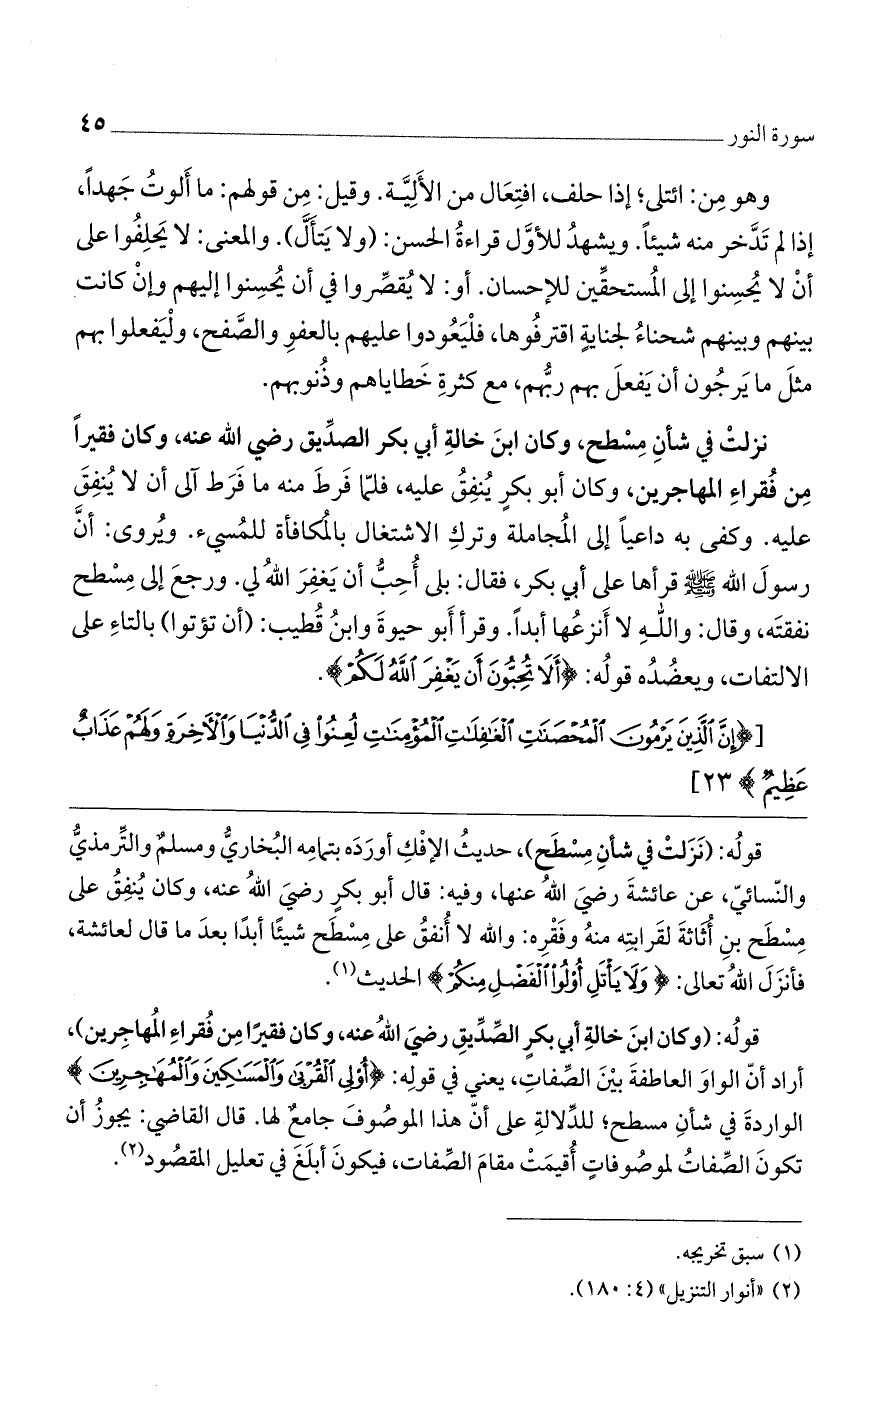 سورة النور ــــــــــــــــــــ ٤٥
وهو مِن: ائتلى؛ إذا حلف، افتِعَال من الأَلِيَّة. وقيل: مِن قولهم: ما أَلوتُ جَهداً،
إذا لم تَدَّخر منه شيئاً. ويشهدُ للأوَّل قراءةُ الحسن: (ولا يَتأَلَّ). والمعنى: لا يَحلِفُوا على
أنْ لا يُحسِنوا إلى المُستحقِّين للإحسان. أو: لا يُقصِّروا في أن يُحسِنوا إليهم وإنْ كانت
بينهم وبينهم شحناءُ لجنايةٍ اقترفُوها، فلْيَعُودوا عليهم بالعفوِ والصَّفح، ولْيَفعلوا بهم
مثلَ ما يَرجُون أن يَفعلَ بهم ربُّهم، مع كثرةِ خَطاياهم وذُنوبهم.
نزلتْ في شأنِ مِسْطح، وكان ابنَ خالةِ أبي بكر الصدِّيق رضي الله عنه، وكان فقيراً
مِن فُقراءِ المهاجرين، وكان أبو بكرٍ يُنفِقُ عليه، فلمّا فَرطَ منه ما فَرَط آلى أن لا يُنفِقَ
عليه. وكفى به داعياً إلى المُجاملة وتركِ الاشتغال بالمُكافأة للمُسيء. ويُروى: أنَّ
رسولَ الله ﷺ قرأها على أبي بكر، فقال: بلى أُحِبُّ أن يَغفِرَ اللهُ لي. ورجعَ إلى مِسْطح
نفقتَه، وقال: واللهِ لا أَنزعُها أبداً. وقرأ أبو حيوةَ وابنُ قُطيب: (أن تؤتوا) بالتاءِ على
الالتفات، ويعضُدُه قولُه: ﴿أَلَا تُحِبُّونَ أَن يَغْفِرَ ٱللَّهُ لَكُمْ﴾.
[﴿إِنَّ ٱلَّذِينَ يَرْمُونَ ٱلْمُحْصَنَٰتِ ٱلْغَٰفِلَٰتِ ٱلْمُؤْمِنَٰتِ لُعِنُوا۟ فِى ٱلدُّنْيَا وَٱلْأَخِرَةِ وَلَهُمْ عَذَابٌ
عَظِيمٌ﴾ ٢٣]
قولُه: (نَزَلتْ في شأنِ مِسْطَح)، حديثُ الإفْكِ أورَدَه بتمامِه البُخاريُّ ومسلمٌ والتِّرمذيُّ
والنّسائيّ، عن عائشةَ رضيَ اللهُ عنها، وفيه: قال أبو بكرٍ رضيَ اللهُ عنه، وكان يُنفِقُ على
مِسْطَح بنِ أُثاثةَ لقَرابتِه منهُ وفَقْرِه: والله لا أُنفقُ على مِسْطَح شيئًا أبدًا بعدَ ما قال لعائشة،
فأنزَلَ اللهُ تعالى: ﴿وَلَا يَأْتَلِ أُو۟لُوا۟ ٱلْفَضْلِ مِنكُمْ﴾ الحديث(١).
قولُه: (وكان ابنَ خالةِ أبي بكرٍ الصِّدِّيقِ رضيَ اللهُ عنه، وكان فقيرًا مِن فُقراءِ المُهاجِرين)،
أراد أنّ الواوَ العاطفةَ بيْنَ الصِّفاتِ، يعني في قولِه: ﴿أُو۟لِى ٱلْقُرْبَىٰ وَٱلْمَسَٰكِينَ وَٱلْمُهَٰجِرِينَ﴾
الواردةَ في شأنِ مسطح؛ للدِّلالةِ على أنّ هذا الموصُوفَ جامعٌ لها. قال القاضي: يجوزُ أن
تكونَ الصِّفاتُ لموصُوفاتٍ أُقيمَتْ مقامَ الصِّفات، فيكونَ أبلَغَ في تعليلِ المقصُود(٢).
(١) سبق تخريجه.
(٢) «أنوار التنزيل» (٤: ١٨٠).